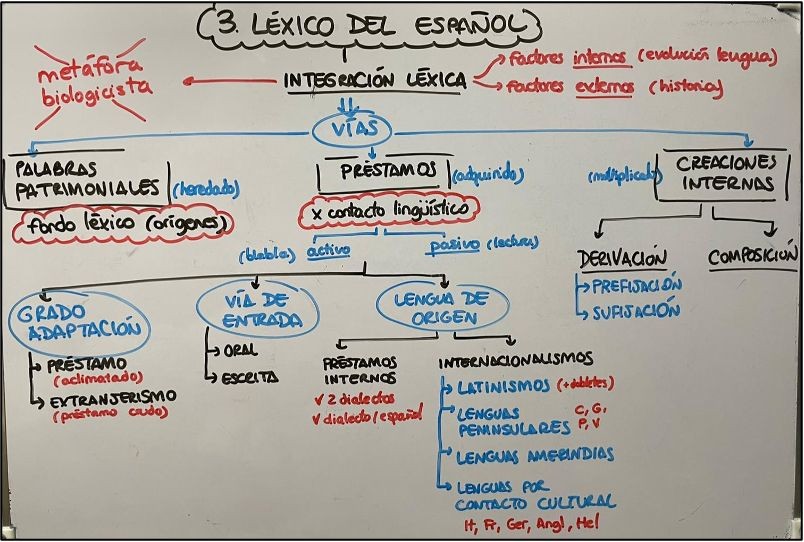 3. LÉXICO DEL ESPAÑOL
metáfora
biologicista
INTEGRACIÓN LÉXICA
factores internos (evolución lengua)
factores externos (historia)
VÍAS
PALABRAS
PATRIMONIALES (heredado)
fondo léxico (orígenes)
PRÉSTAMOS (adquirido)
x contacto lingüístico
(habla) activo
pasivo (lectura)
(multiplicado)
CREACIONES
INTERNAS
DERIVACIÓN
PREFIJACIÓN
SUFIJACIÓN
COMPOSICIÓN
GRADO
ADAPTACIÓN
PRÉSTAMO
(aclimatado)
EXTRANJERISMO
(préstamo crudo)
VÍA DE
ENTRADA
ORAL
ESCRITA
LENGUA DE
ORIGEN
PRÉSTAMOS
INTERNOS
✓ 2 dialectos
✓ dialecto/español
INTERNACIONALISMOS
LATINISMOS (+dobletes)
LENGUAS C, G,
PENINSULARES P, V
LENGUAS AMERINDIAS
LENGUAS POR
CONTACTO CULTURAL
It, Fr, Ger, Angl, Hel